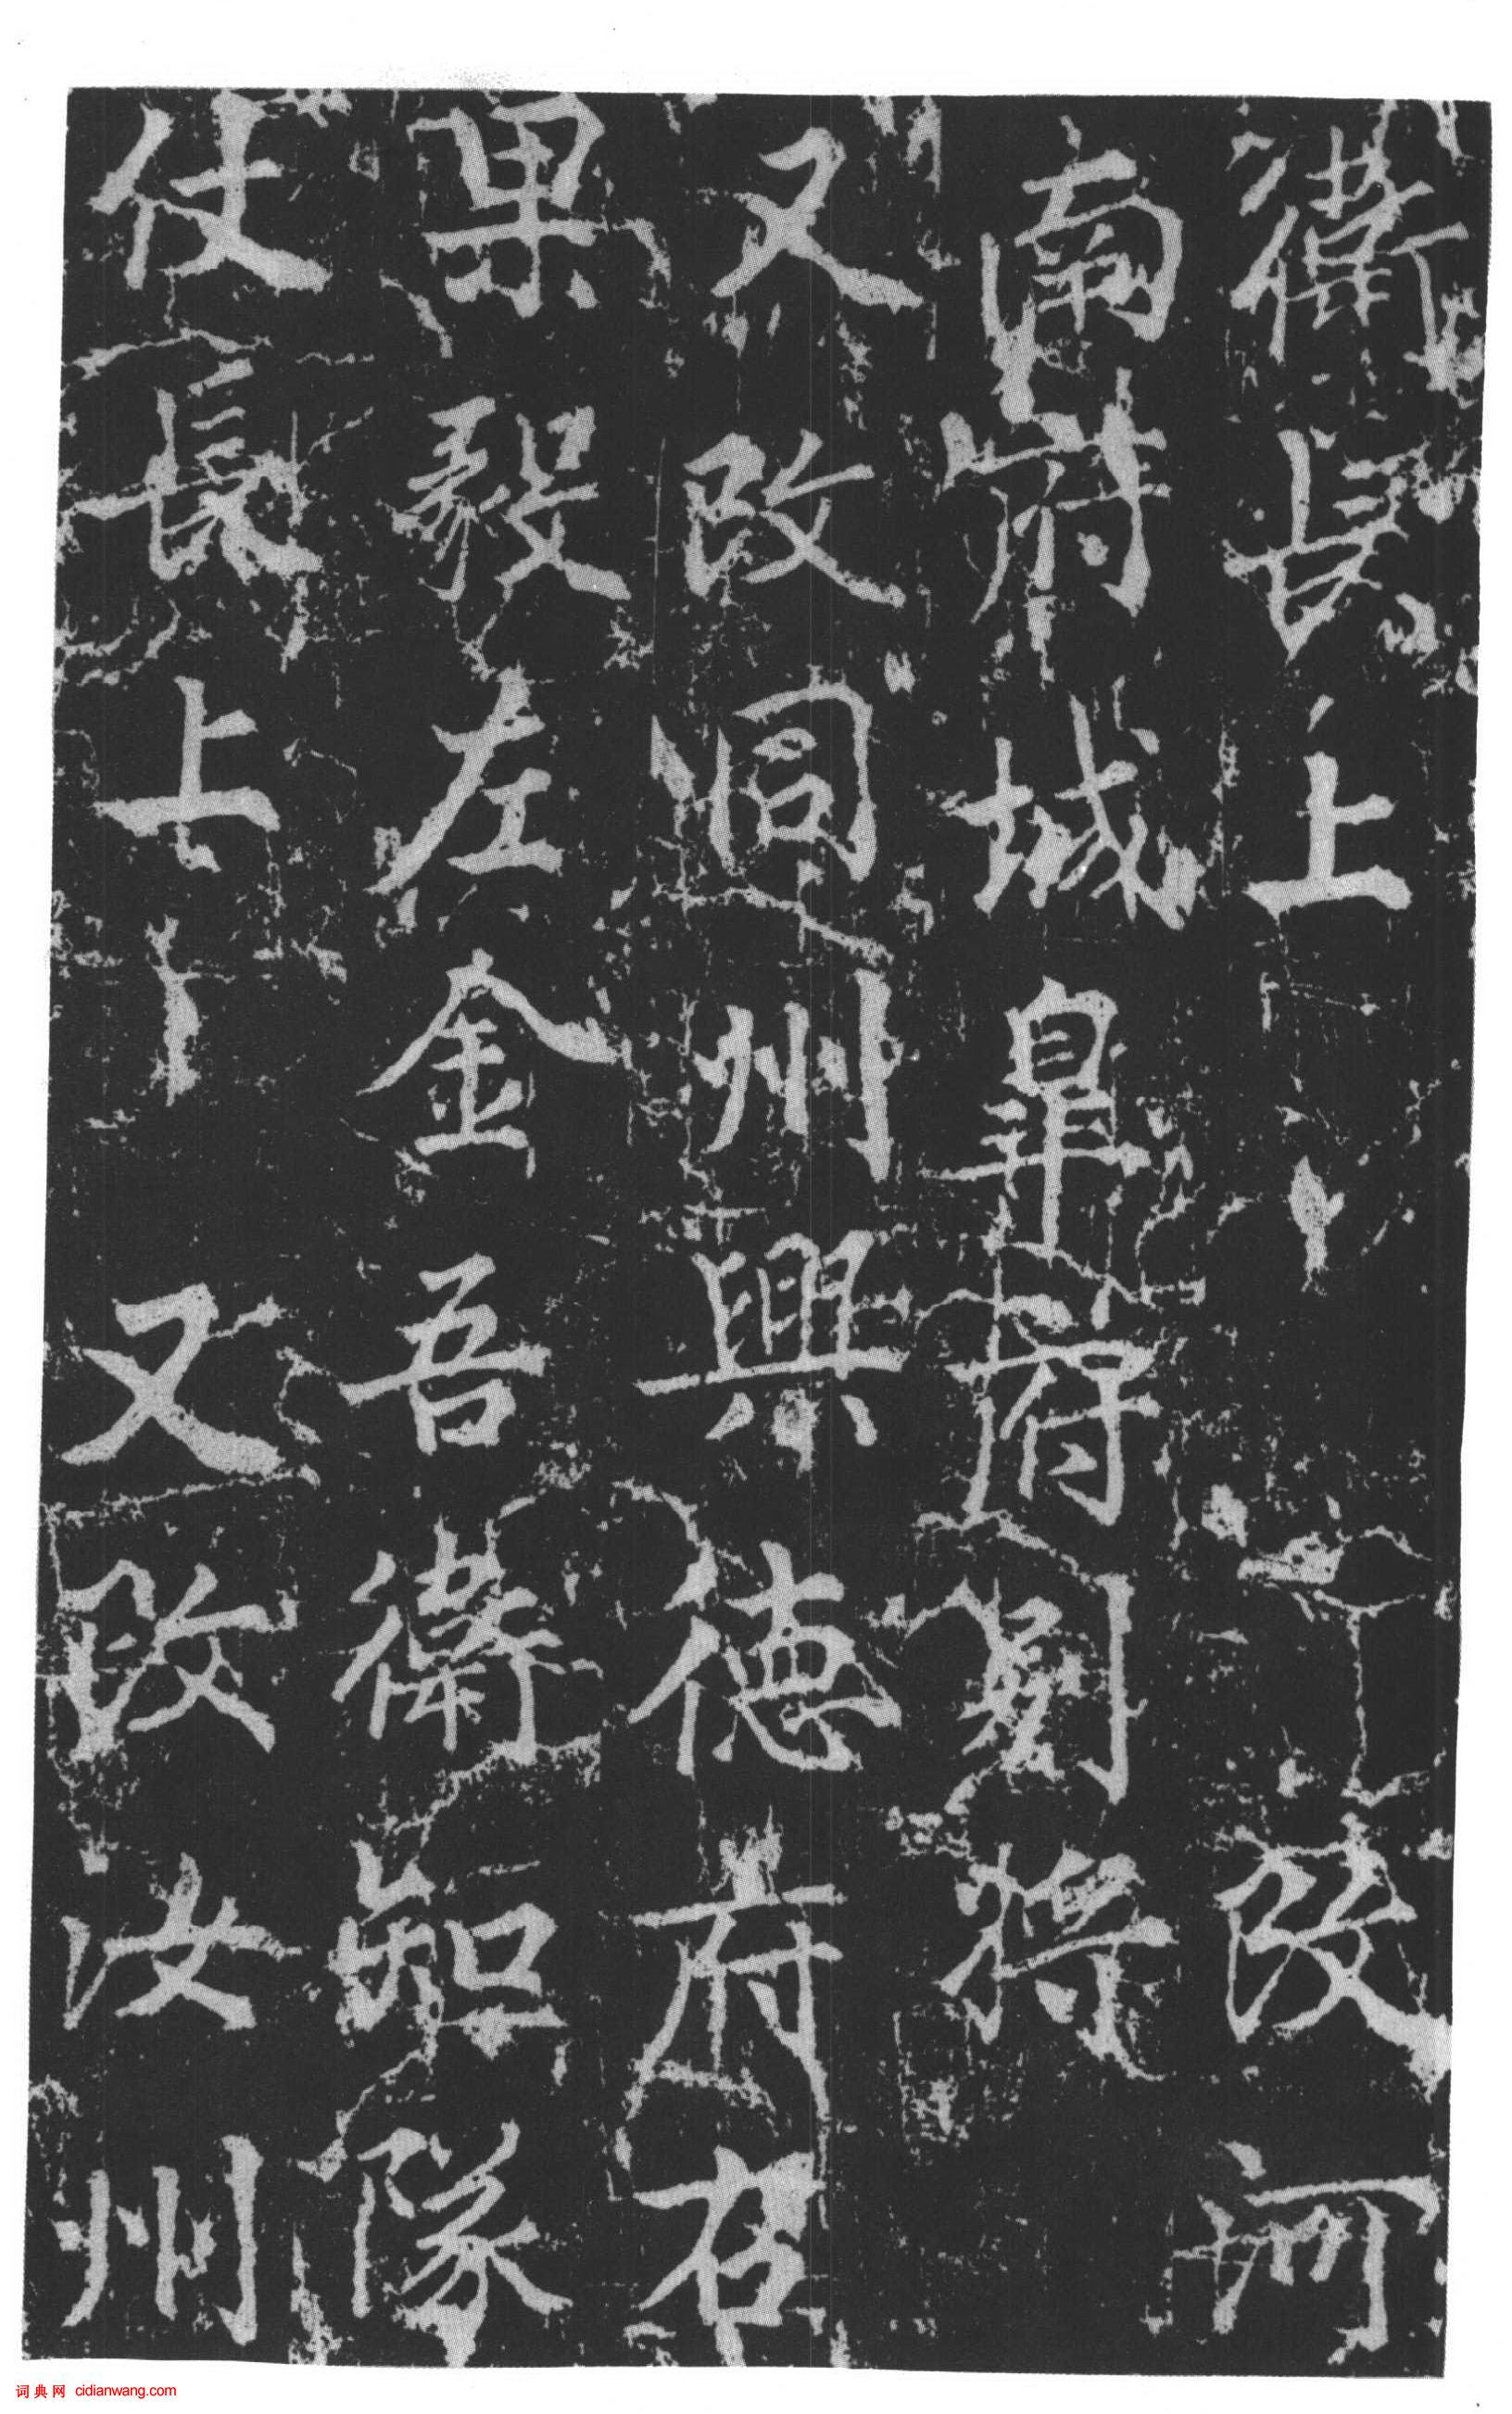 衛長上改河
南府城皐府別將
又改同州興德府右
果毅左金吾衛知隊
仗長上又改汝州
词典网 cidianwang.com